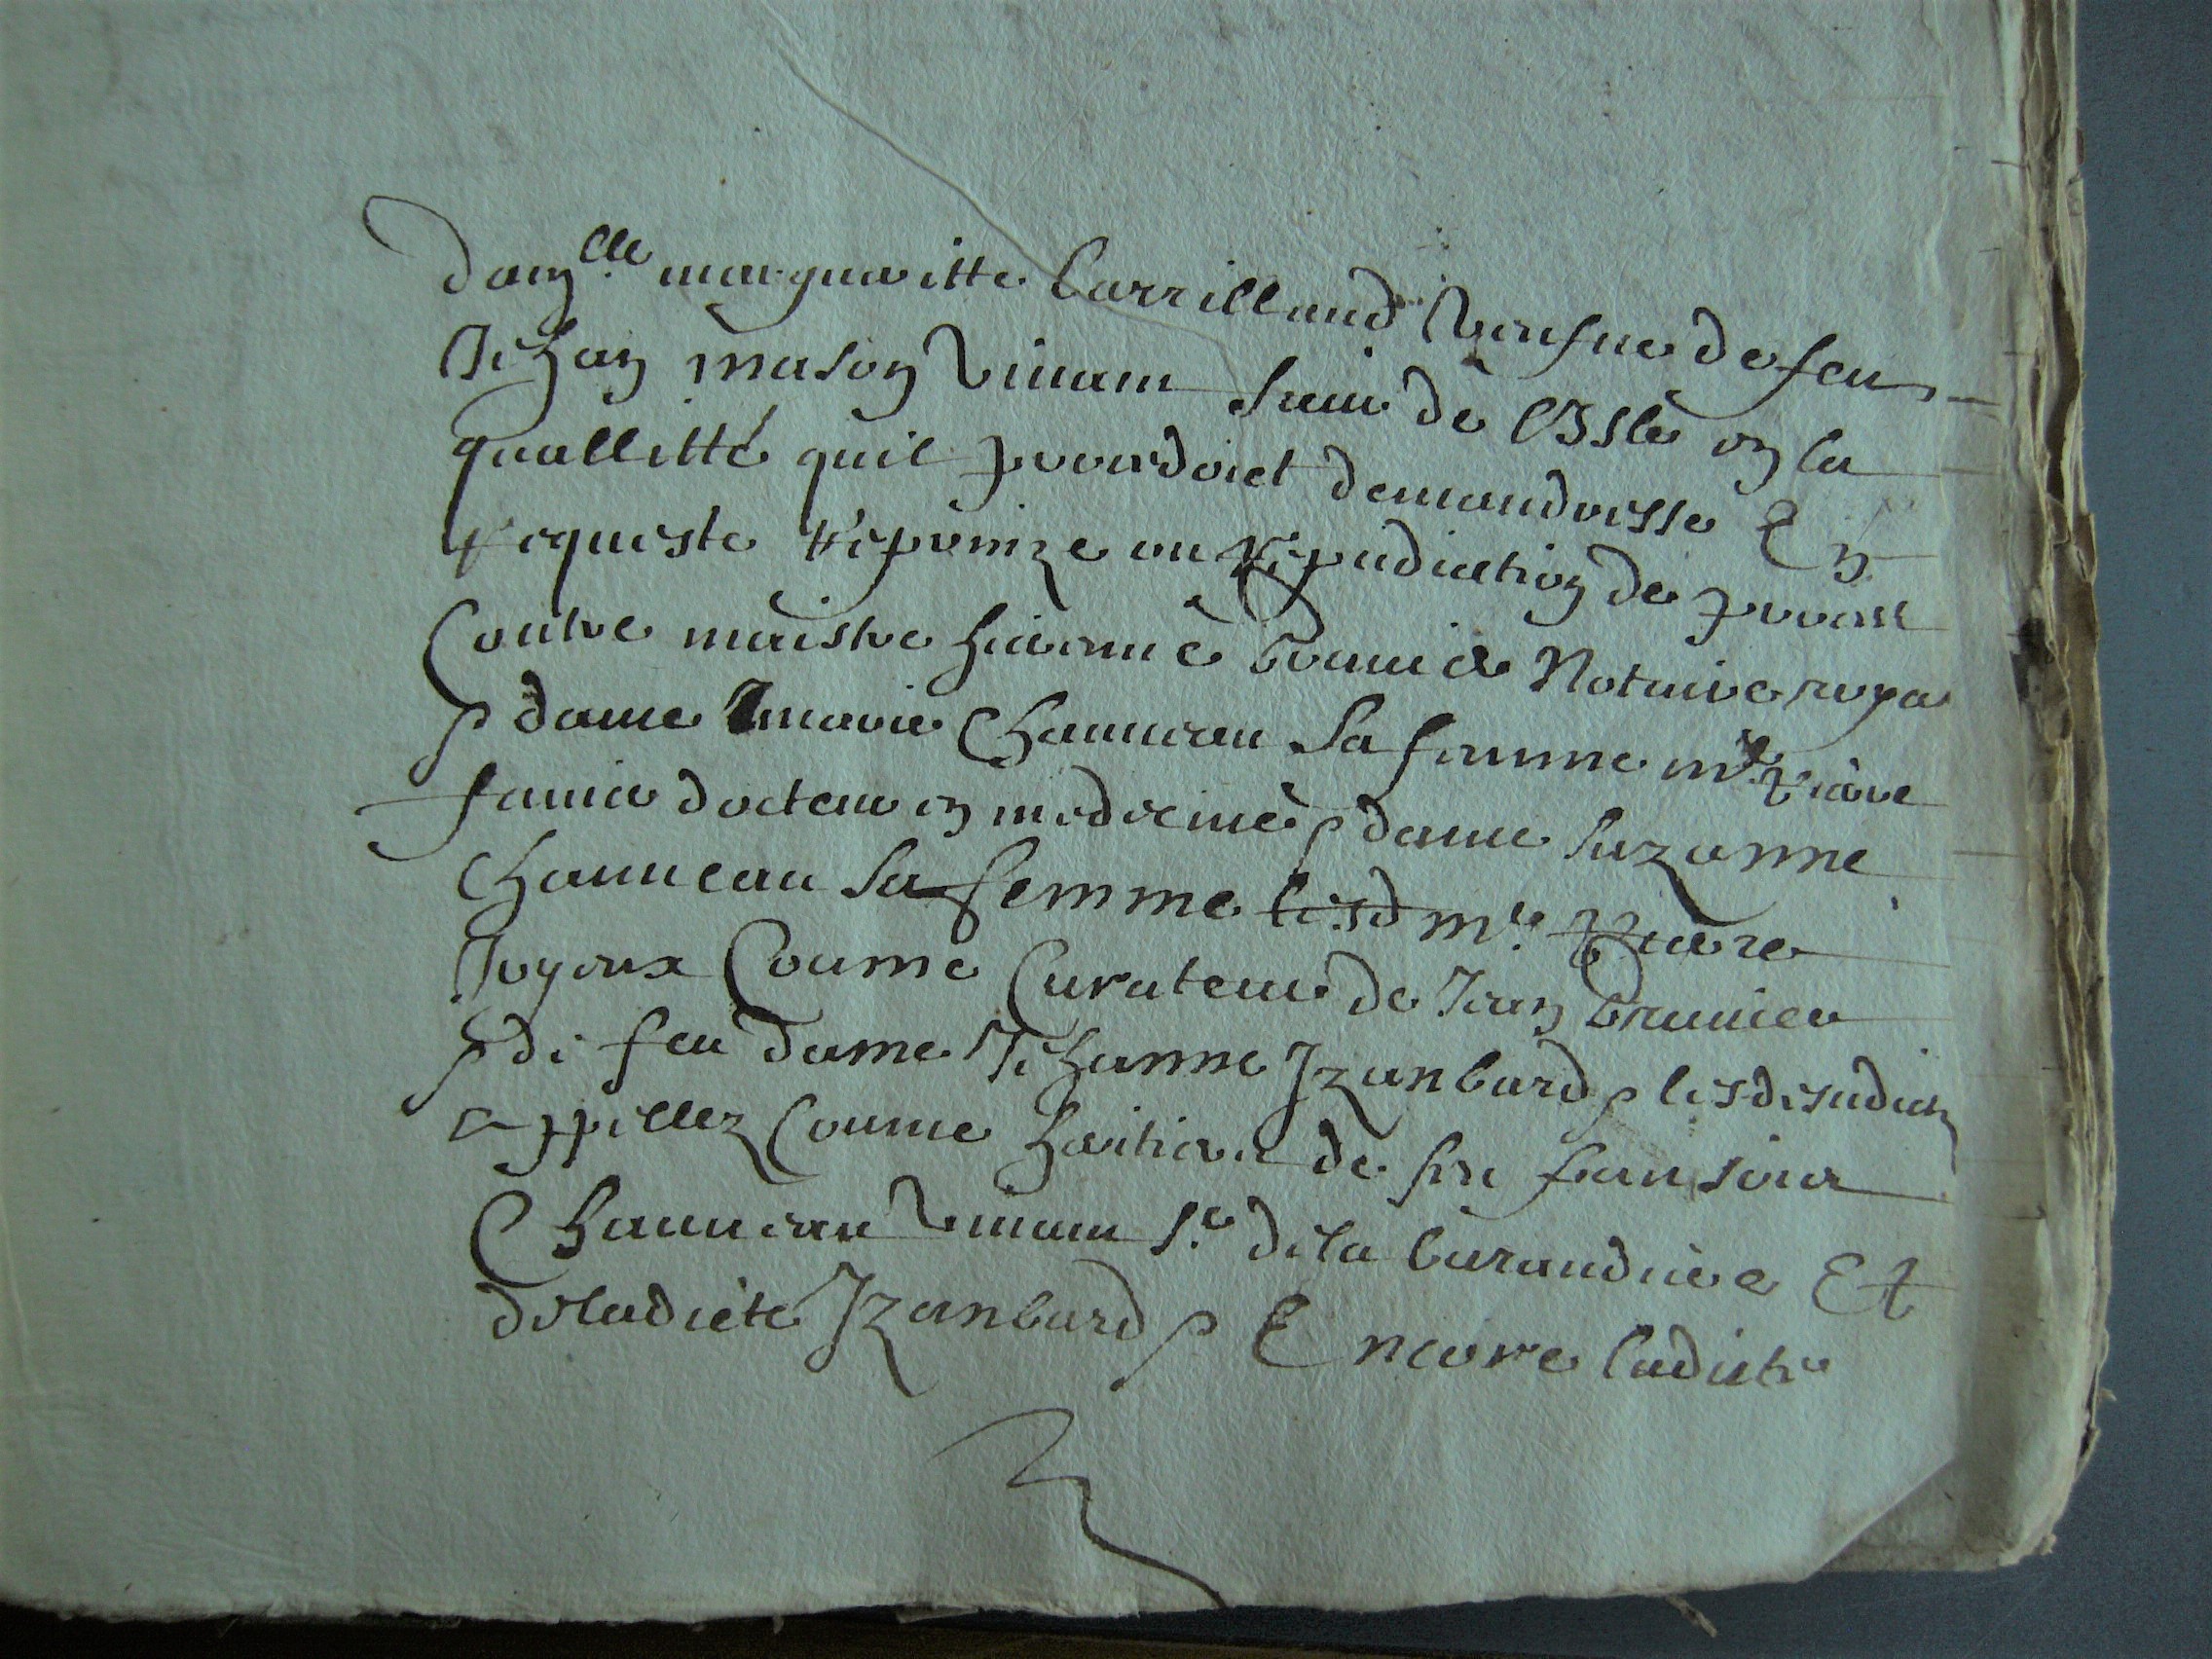 damlle marguaritte barrillaud veufve de feu
Jehan mason vivant sieur de l'Isle en la
quallitté quil proceddoict demandresse En
requeste reprinze ou repudiation de proces
Contre maistre brunier Notaire roya
& dame marie Chauneau sa femme me Pierre
docteur en medecine & dame Suzanne
Chauneau sa femme lesd me Pierre
Joyeux Comme Curateur de Jean brunier
& de feu dame Jehanne Izanbard & lesdictz
appellez Comme haritiers de feu françois
Chauneau vivant sr de la baraudiere Et
de ladicte Izanbard & Encore ladicte